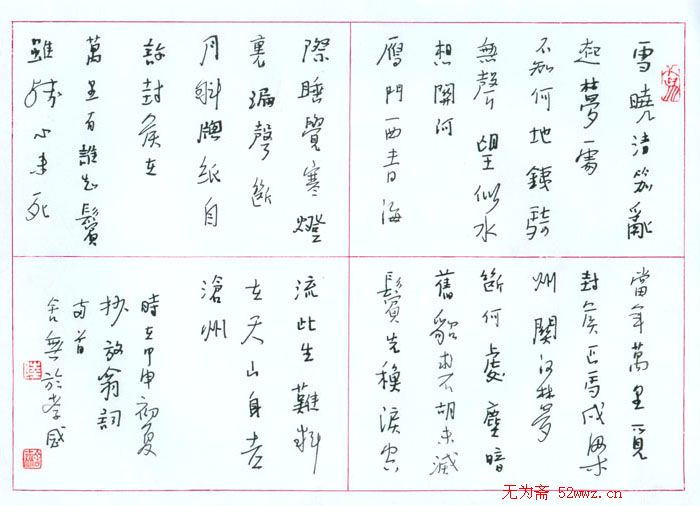 雪曉清笳亂
起夢處
不知何地鐵騎
無聲望似水
想關河
雁門西青海
際睡覺寒燈
裏漏聲斷
月斜窗紙自
許封侯在
萬里有誰知鬢
雖殘心未死
當年萬里覓
封侯匹馬戍梁
州關河夢
斷何處塵暗
舊貂裘胡未滅
鬢先秋淚空
流此生難料
在天山身老
滄州
時在甲申初夏
抄放翁詞
兩首
舍無於孝感
无为斋 52wwz.cn